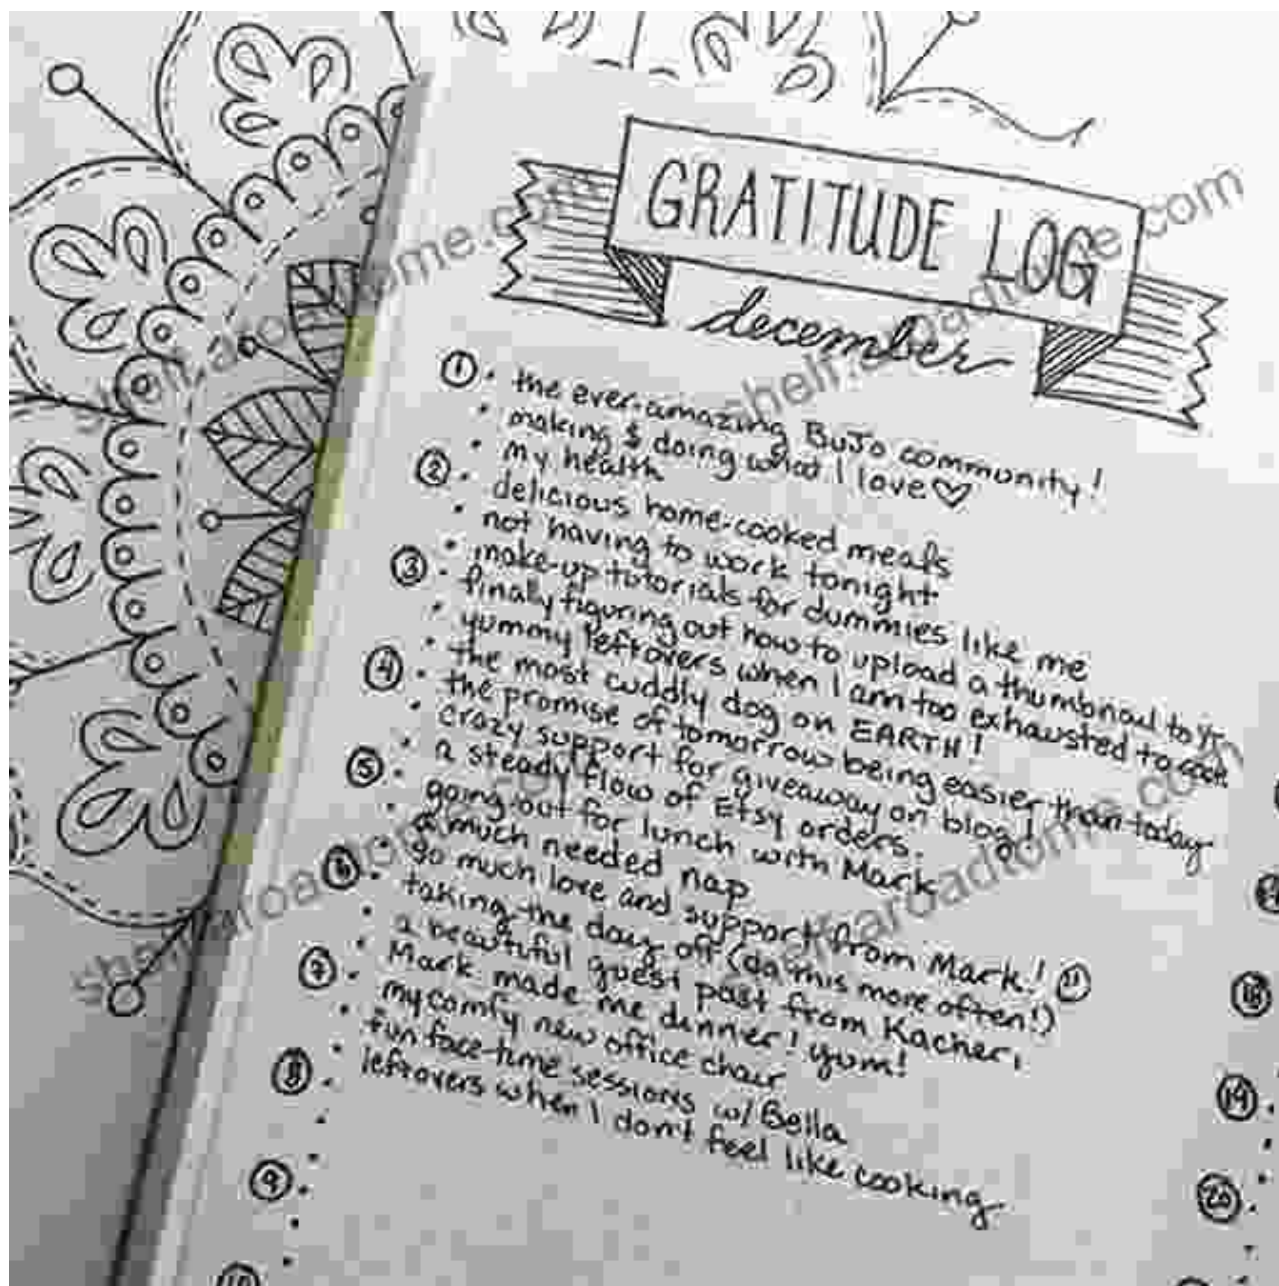 GRATITUDE LOG
december
① • the ever-amazing BuJo community!
• making & doing what I love ♡
• my health
② • delicious home-cooked meals
• not having to work tonight
• make-up tutorials for dummies like me
③ • finally figuring out how to upload a thumbnail to
• yummy leftovers when I am too exhausted to cook
• the most cuddly dog on EARTH!
④ • the promise of tomorrow being easier than today
• crazy support for giveaway on blog!
• a steady flow of Etsy orders.
⑤ • going out for lunch with Mark
• a much needed nap
• so much love and support from Mark!
⑥ • taking the day off (do this more often!)
• a beautiful guest post from Kacheri
• Mark made me dinner! yum!
⑦ • my comfy new office chair
• fun face-time sessions w/ Bella
• leftovers when I don't feel like cooking
⑧
⑨
⑩
⑱
⑲
⑳